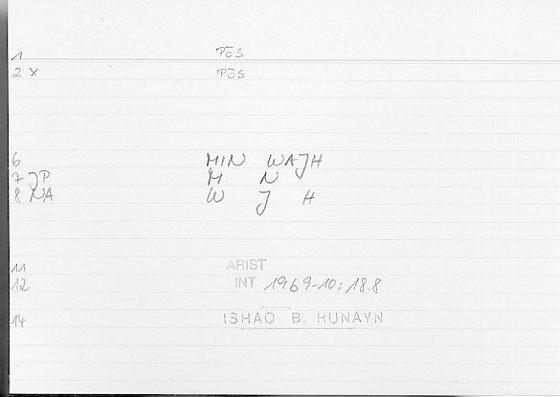 1 PŌS
2 x PŌS
6 MIN WAJH
7 JP M N
8 NA W J H
11 ARIST
12 INT 1969-10:18.8
14 ISHAQ B. HUNAYN